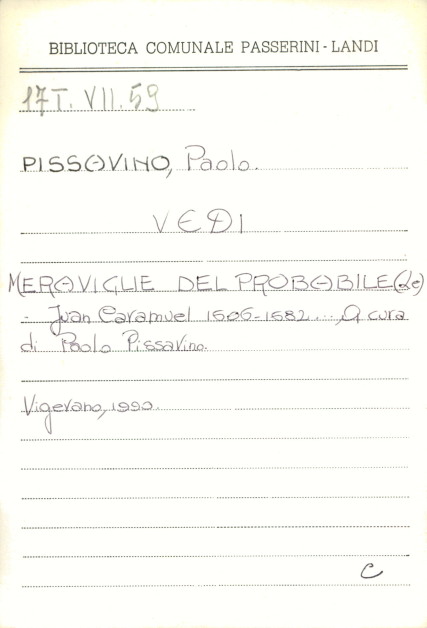 BIBLIOTECA COMUNALE PASSERINI-LANDI
17T. VII. 59
PISSAVINO, Paolo.
VEDI
MERAVIGLIE DEL PROBABILE (Le)
- Juan Caramuel 1606-1682..., A cura
di Paolo Pissavino.
Vigevano, 1990.
C